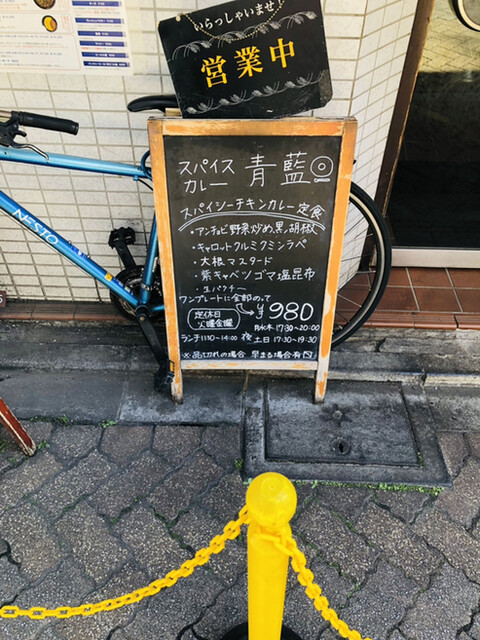 いらっしゃいませ
営業中
スパイス
カレー 青藍
スパイシーチキンカレー定食
・アンチョビ野菜炒め、黒胡椒
・キャロットクルミクミンラペ
・大根マスタード
・紫キャベツゴマ塩昆布
・生パクチー
ワンプレートに全部のって
¥980
定休日
火曜金曜
月水木 17:30~20:00
ランチ 11:30~14:00 夜 土日 17:30~19:30
※品切れの場合 早まる場合有
NESTO